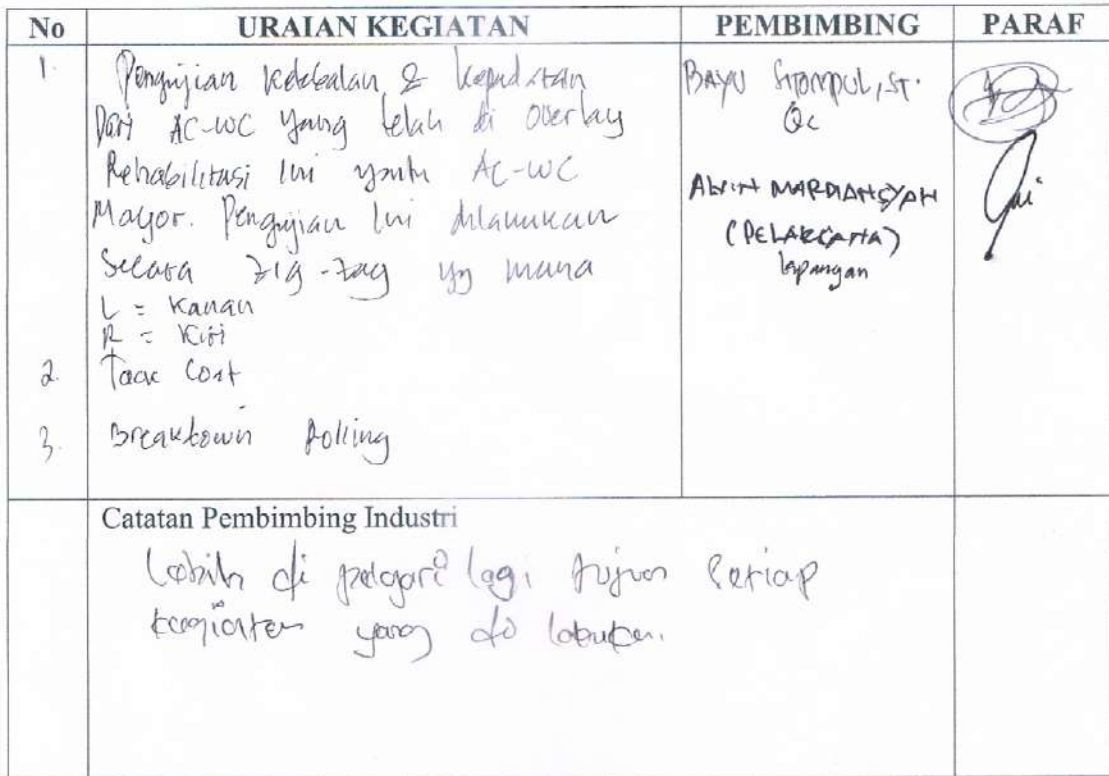 No URAIAN KEGIATAN PEMBIMBING PARAF
1. Pengujian ketebalan & kepadatan
Dari AC-WC yang telah di overlay
Rehabilitasi ini yaitu AC-WC
Mayor. Pengujian ini dilakukan
Secara zig-zag yg mana
L = Kanan
R = Kiri
2. Tack Coat
3. Breakdown Rolling
BAYU SITOMPUL, ST.
Qc
MARDIANSYAH
(PELAKSANA)
lapangan
Catatan Pembimbing Industri
Lebih di pelajari lagi tujuan setiap
kegiatan yang di lakukan.